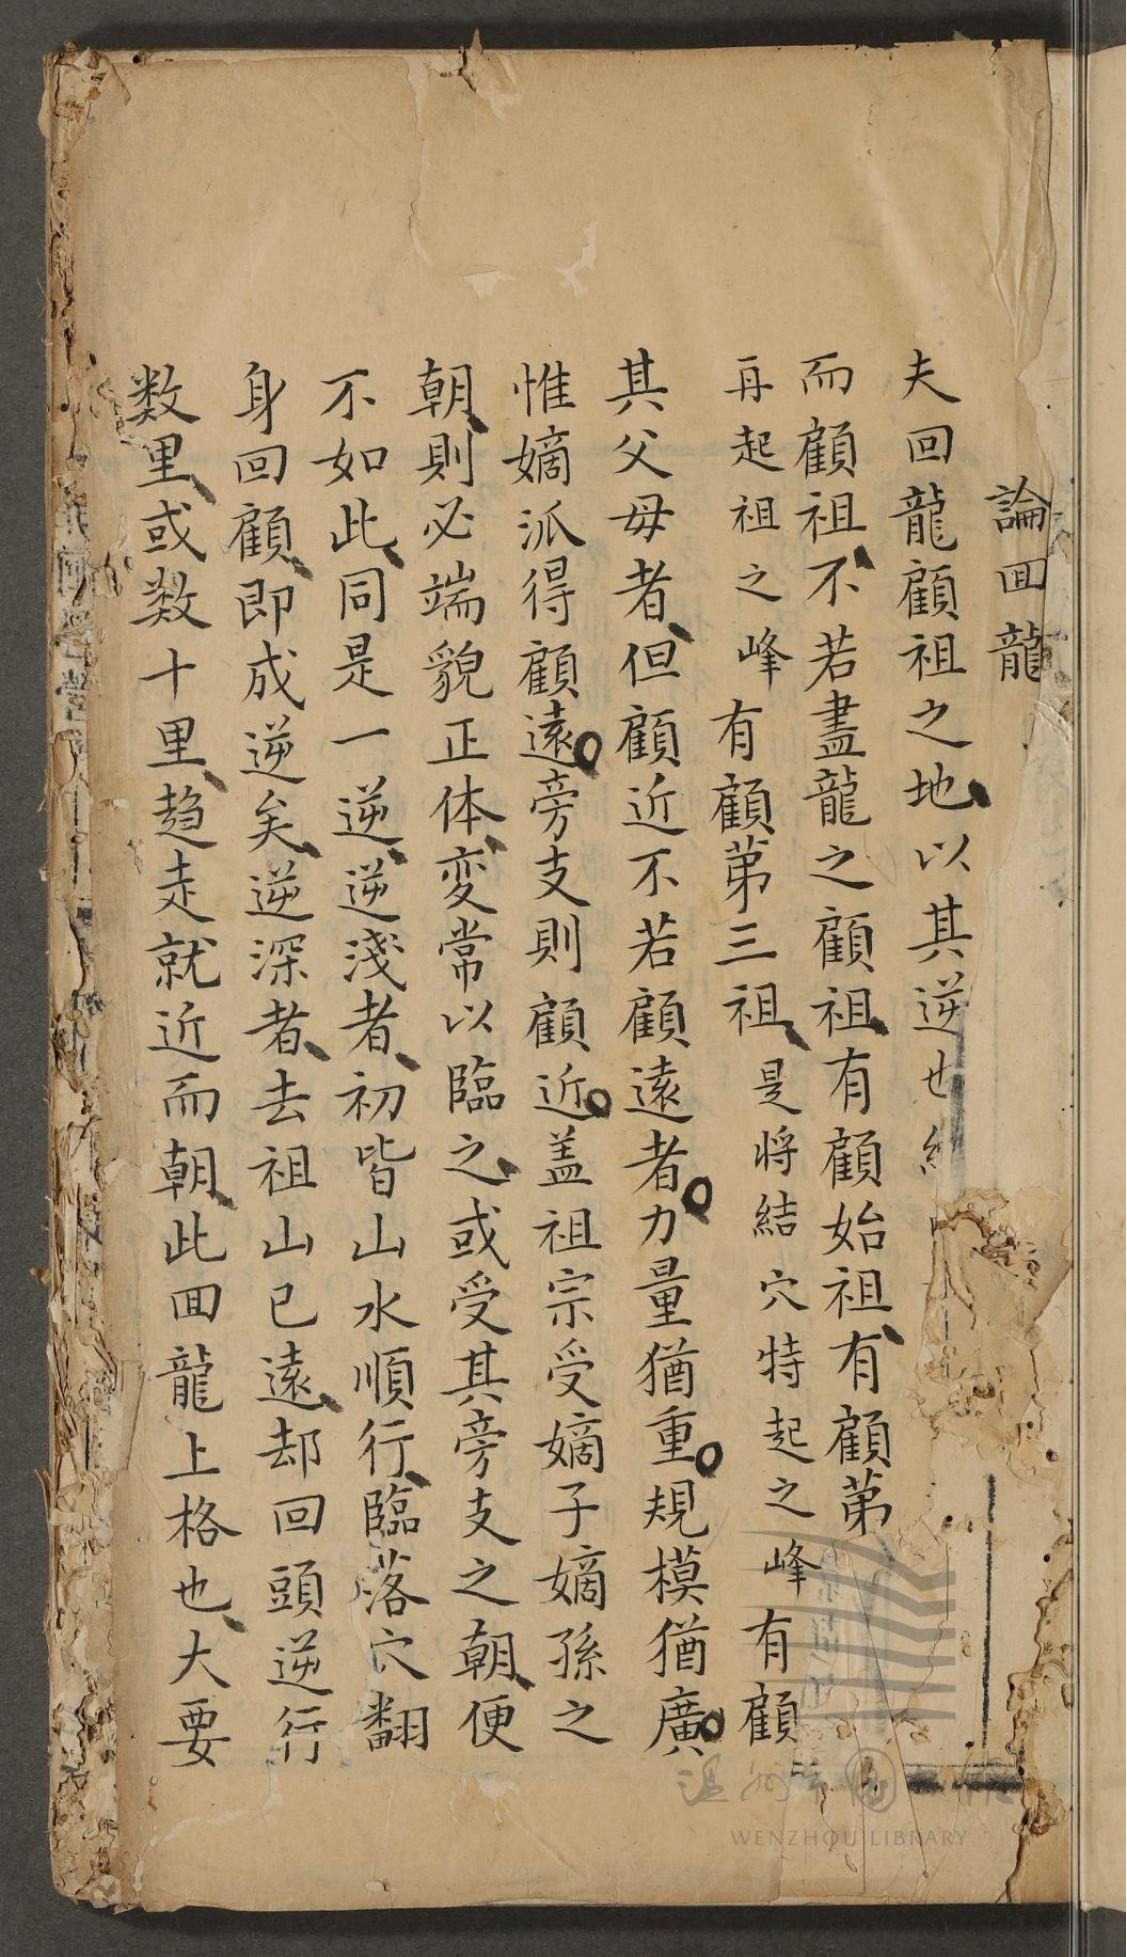 論囬龍
夫回龍顧祖之地以其逆也
而顧祖不若盡龍之顧祖有顧始祖有顧苐
再起祖之峰有顧苐三祖是将結穴特起之峰有顧
其父毋者但顧近不若顧遠者力量猶重規模猶廣
惟嫡派得顧遠旁支則顧近盖祖宗受嫡子嫡孫之
朝則必端貌正体変常以臨之或受其旁支之朝便
不如此同是一逆逆淺者初皆山水順行臨落穴翻
身回顧即成逆矣逆深者去祖山已遠却回頭逆行
数里或数十里趋走就近而朝此囬龍上格也大要
WENZHOU LIBRARY